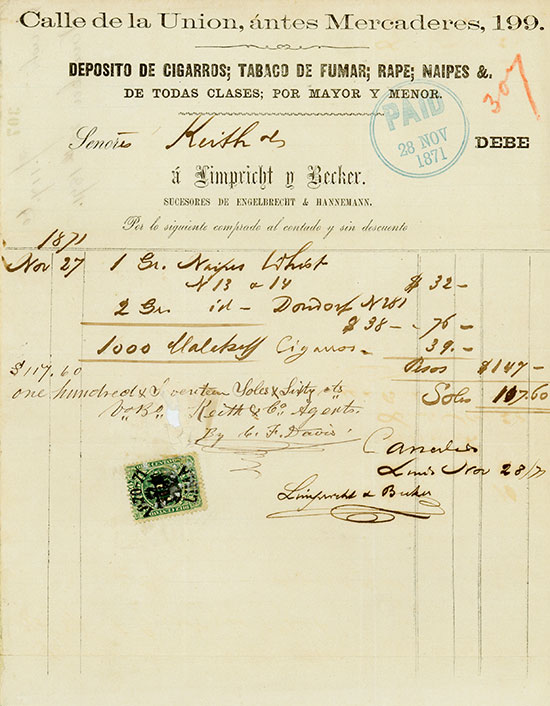 Calle de la Union, ántes Mercaderes, 199.
DEPOSITO DE CIGARROS; TABACO DE FUMAR; RAPE; NAIPES &.
DE TODAS CLASES; POR MAYOR Y MENOR.
307
PAID
28 NOV
1871
Señores Keith DEBE
á Limpricht y Becker.
SUCESORES DE ENGELBRECHT & HANNEMANN.
Por lo siguiente comprado al contado y sin descuento
1871
Nov 27 1 Gr. Naipes Whist
N 13 a 14 $ 32-
2 Gr id- Dondorf N 281
$ 38- 76-
1000 Cigarros- 39.-
Pesos $147-
$117.60
one hundred & Seventeen Soles & Sixty cts Soles 117.60
Vo Bo Keith & Co Agents.
By C. F. Davis
Cancelado
Lima Nov 28/71
Limpricht & Becker